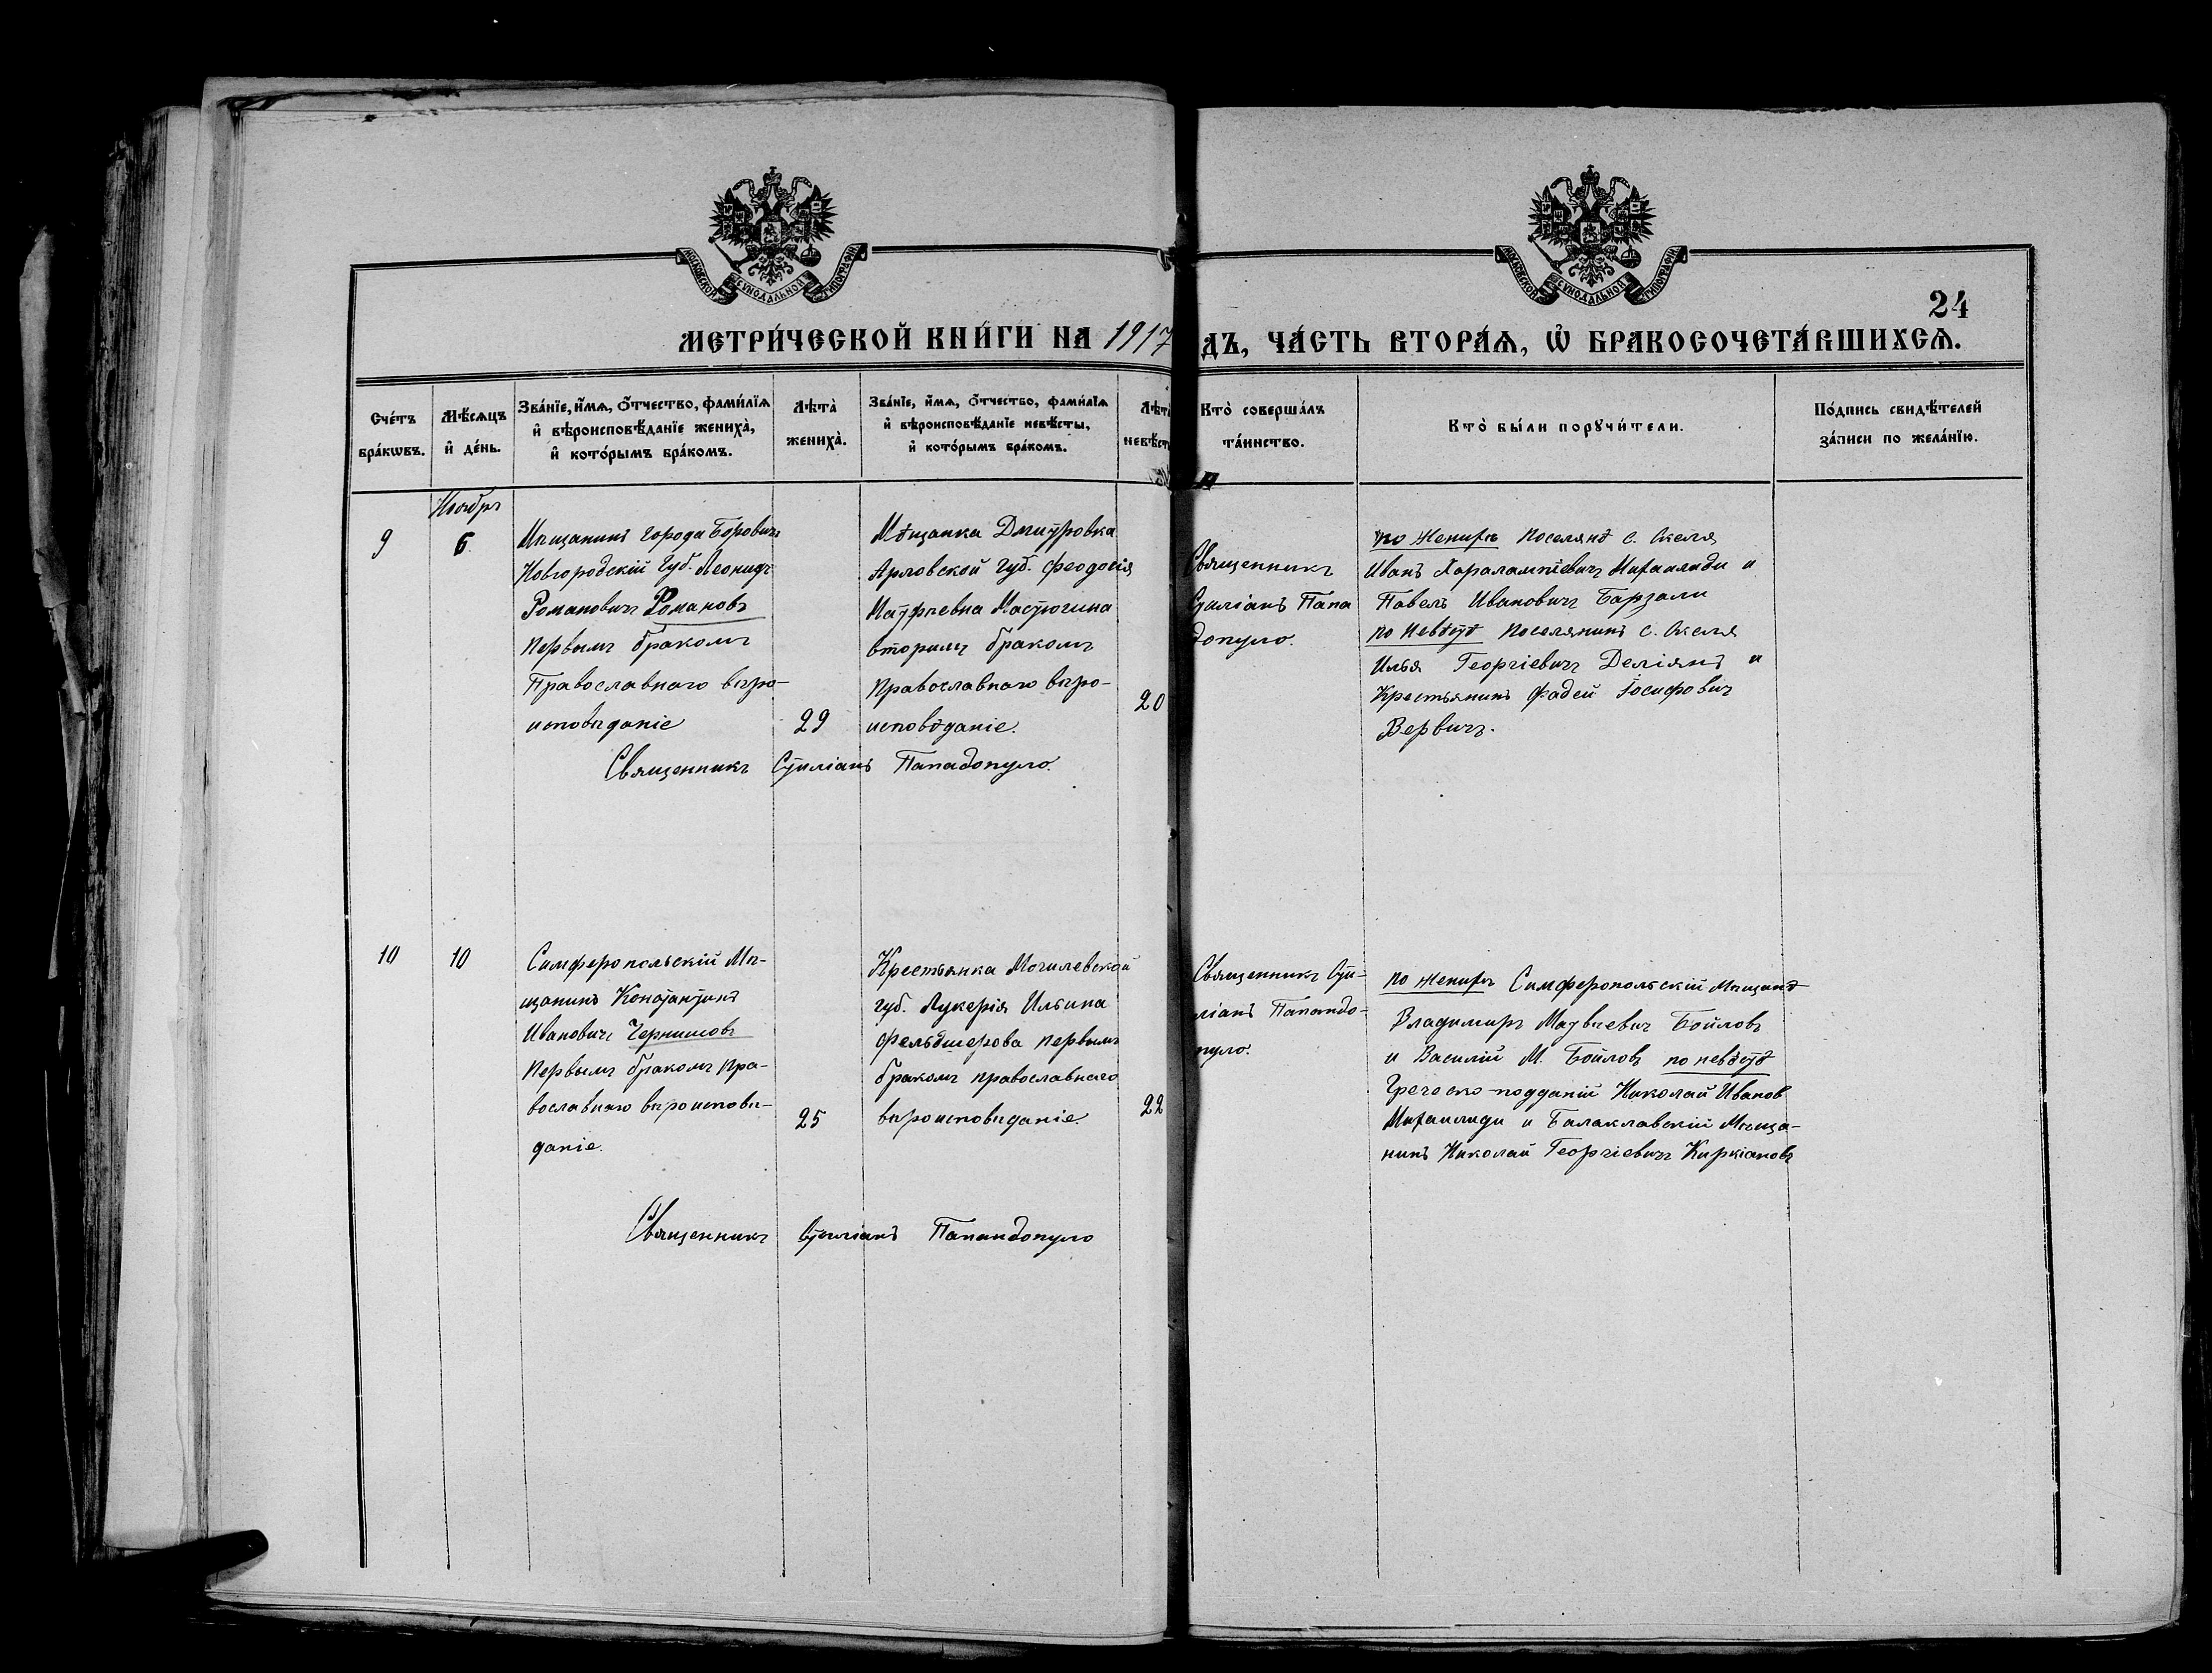 МОСКОВСКОЙ СΥНОДАЛЬНОЙ ТИПОГРАФІИ
МОСКОВСКОЙ СΥНОДАЛЬНОЙ ТИПОГРАФІИ
24
МЕТРИ́ЧЕСКОЙ КНИ́ГИ НА 1917
ДЪ, ЧА́СТЬ ВТОРА́Ѧ, Ѽ БРАКОСОЧЕТА́ВШИХСѦ.
Сче́тъ
бра́кѡвъ.
Мѣ́сяцъ
и҆ де́нь.
Зва́нїе, и҆́мѧ, Ѻ҆́тчество, фами́лїѧ
и҆ вѣроисповѣ́данїе жениха̀,
и҆ кото́рымъ бра́комъ.
Лѣта̀
жениха̀.
Зва́нїе, и҆́мѧ, Ѻ҆́тчество, фами́лїѧ
и҆ вѣроисповѣ́данїе невѣ́сты,
и҆ кото́рымъ бра́комъ.
Лѣта
невѣст
Кто̀ соверша́лъ
та́инство.
Кто̀ бы́ли порꙋчи́тели.
По́дпись свидѣ́телей
за́писи по жела́нїю.
Ноябрь
9
6.
Мѣщанинъ города Боровичъ
Новгородскій Губ. Леонидъ
Романовичъ Романовъ
первымъ бракомъ
Православнаго вѣро-
исповѣданіе
29
Мѣщанка Дмитровка
Арловской Губ. Феодосія
Матфѣевна Мастюгина
вторымъ бракомъ
православнаго вѣро-
исповѣданіе.
20
Священникъ
Стиліанъ Папа
допуло.
по женихѣ Поселянѣ с. Скеля
Иванъ Харалампіевичъ Михаилиди и
Павелъ Ивановичъ Барзали
по невѣстѣ Поселянинъ с. Скеля
Илья Георгіевичъ Деліянъ и
Крестьянинъ Фадей Іосифовичъ
Вервичъ.
Священникъ Стиліанъ Пападопуло.
10
10
Симферопольскій Мѣ-
щанинъ Константинъ
Ивановичъ Чернишовъ
первымъ бракомъ пра-
вославнаго вѣроисповѣ-
даніе.
25
Крестьянка Могилевской
губ. Лукерія Ильина
Фельдшерова первымъ
бракомъ православнаго
вѣроисповѣданіе.
22
Священникъ Сти-
ліанъ Папандо-
пуло.
по женихѣ Симферопольскій мѣщанѣ
Владимиръ Матвѣевичъ Бойловъ
и Василій М. Бойловъ по невѣстѣ
Греческо-подданій Николай Иванов
Михаилиди и Балаклавскій Мѣща-
нинъ Николай Георгіевичъ Киркіановъ
Священникъ Стиліанъ Папандопуло